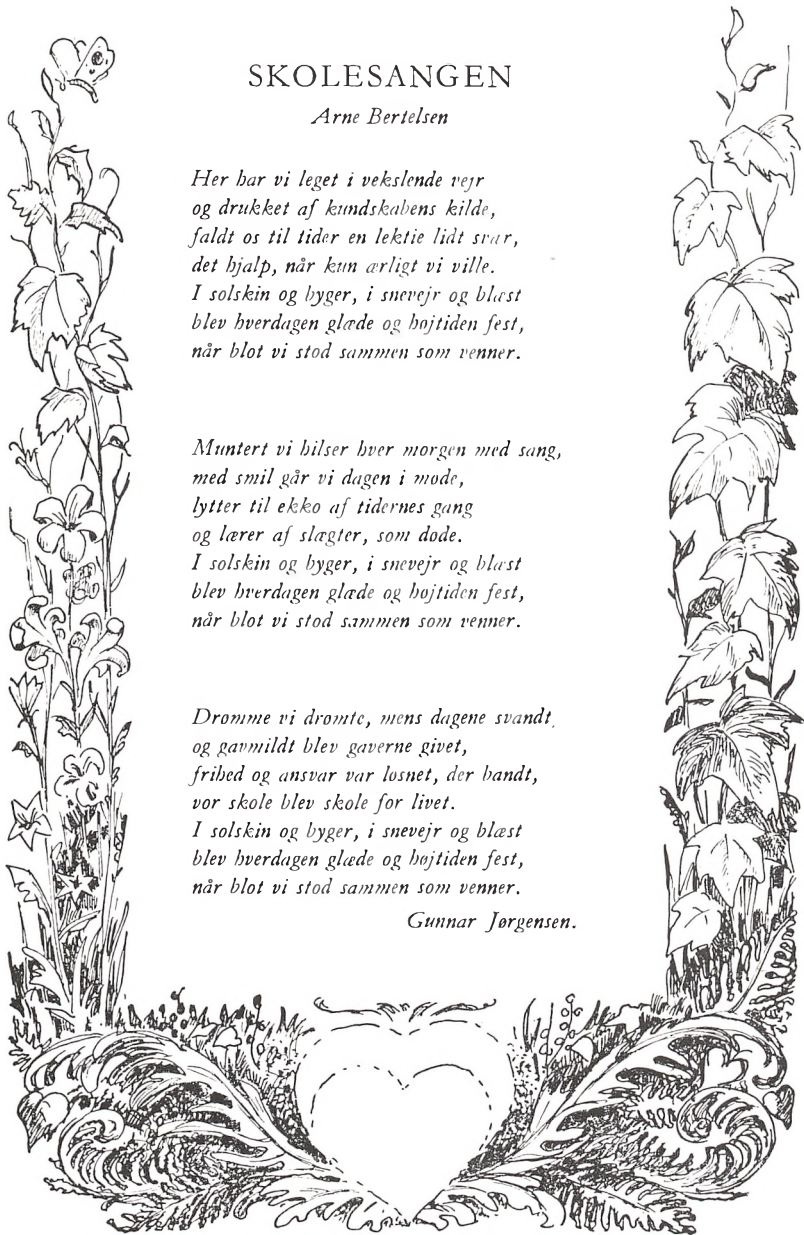 SKOLESANGEN
Arne Bertelsen
Her har vi leget i vekslende vejr
og drukket af kundskabens kilde,
faldt os til tider en lektie lidt svær,
det hjalp, når kun ærligt vi ville.
I solskin og byger, i snevejr og blæst
blev hverdagen glæde og højtiden fest,
når blot vi stod sammen som venner.
Muntert vi hilser hver morgen med sang,
med smil går vi dagen i møde,
lytter til ekko af tidernes gang
og lærer af slægter, som døde.
I solskin og byger, i snevejr og blæst
blev hverdagen glæde og højtiden fest,
når blot vi stod sammen som venner.
Drømme vi drømte, mens dagene svandt
og gavmildt blev gaverne givet,
frihed og ansvar var løsnet, der bandt,
vor skole blev skole for livet.
I solskin og byger, i snevejr og blæst
blev hverdagen glæde og højtiden fest,
når blot vi stod sammen som venner.
Gunnar Jørgensen.